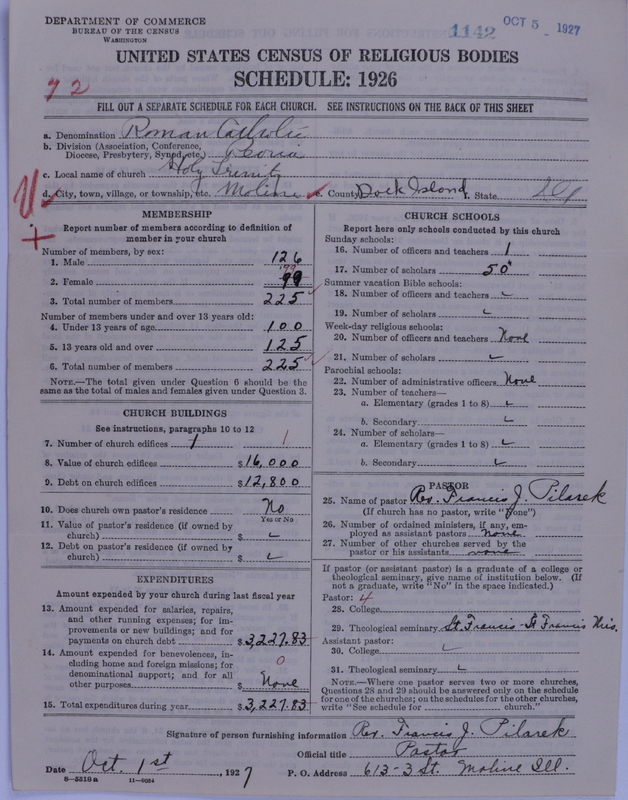 DEPARTMENT OF COMMERCE
BUREAU OF THE CENSUS
WASHINGTON
1142 OCT 5 1927
UNITED STATES CENSUS OF RELIGIOUS BODIES
SCHEDULE: 1926
72
FILL OUT A SEPARATE SCHEDULE FOR EACH CHURCH. SEE INSTRUCTIONS ON THE BACK OF THIS SHEET
a. Denomination Roman Catholic
b. Division (Association, Conference,
Diocese, Presbytery, Synod, etc.) Peoria
c. Local name of church Holy Trinity
d. City, town, village, or township, etc. Moline e. County Rock Island f. State
MEMBERSHIP
Report number of members according to definition of
member in your church
Number of members, by sex:
1. Male 126
2. Female 99
3. Total number of members 225
Number of members under and over 13 years old:
4. Under 13 years of age 100
5. 13 years old and over 125
6. Total number of members 225
NOTE.—The total given under Question 6 should be
the same as the total of males and females given under Question 3.
CHURCH BUILDINGS
See instructions, paragraphs 10 to 12
7. Number of church edifices 1 1
8. Value of church edifices $16,000
9. Debt on church edifices $12,800
10. Does church own pastor's residence No
Yes or No
11. Value of pastor's residence (if owned by
church) $
12. Debt on pastor's residence (if owned by
church) $
EXPENDITURES
Amount expended by your church during last fiscal year
13. Amount expended for salaries, repairs,
and other running expenses; for im-
provements or new buildings; and for
payments on church debt $3,227.83
14. Amount expended for benevolences, in-
cluding home and foreign missions; for
denominational support; and for all
other purposes $ None 0
15. Total expenditures during year $3,227.83
CHURCH SCHOOLS
Report here only schools conducted by this church
Sunday schools:
16. Number of officers and teachers 1
17. Number of scholars 50
Summer vacation Bible schools:
18. Number of officers and teachers
19. Number of scholars
Week-day religious schools:
20. Number of officers and teachers None
21. Number of scholars
Parochial schools:
22. Number of administrative officers None
23. Number of teachers—
a. Elementary (grades 1 to 8)
b. Secondary
24. Number of scholars—
a. Elementary (grades 1 to 8)
b. Secondary
PASTOR
25. Name of pastor Rev. Francis J. Pilarek
(If church has no pastor, write "none")
26. Number of ordained ministers, if any, em-
ployed as assistant pastors none
27. Number of other churches served by the
pastor or his assistants none
If pastor (or assistant pastor) is a graduate of a college or
theological seminary, give name of institution below. (If
not a graduate, write "No" in the space indicated.)
Pastor: 4
28. College
29. Theological seminary St. Francis - St Francis Wis.
Assistant pastor:
30. College
31. Theological seminary
NOTE.—Where one pastor serves two or more churches,
Questions 28 and 29 should be answered only on the schedule
for one of the churches; on the schedules for the other churches,
write "See schedule for church."
Signature of person furnishing information Rev. Francis J. Pilarek
Official title Pastor
Date Oct. 1st, 1927 P. O. Address 613-3 St. Moline Ill.
8-5319a 11-9084